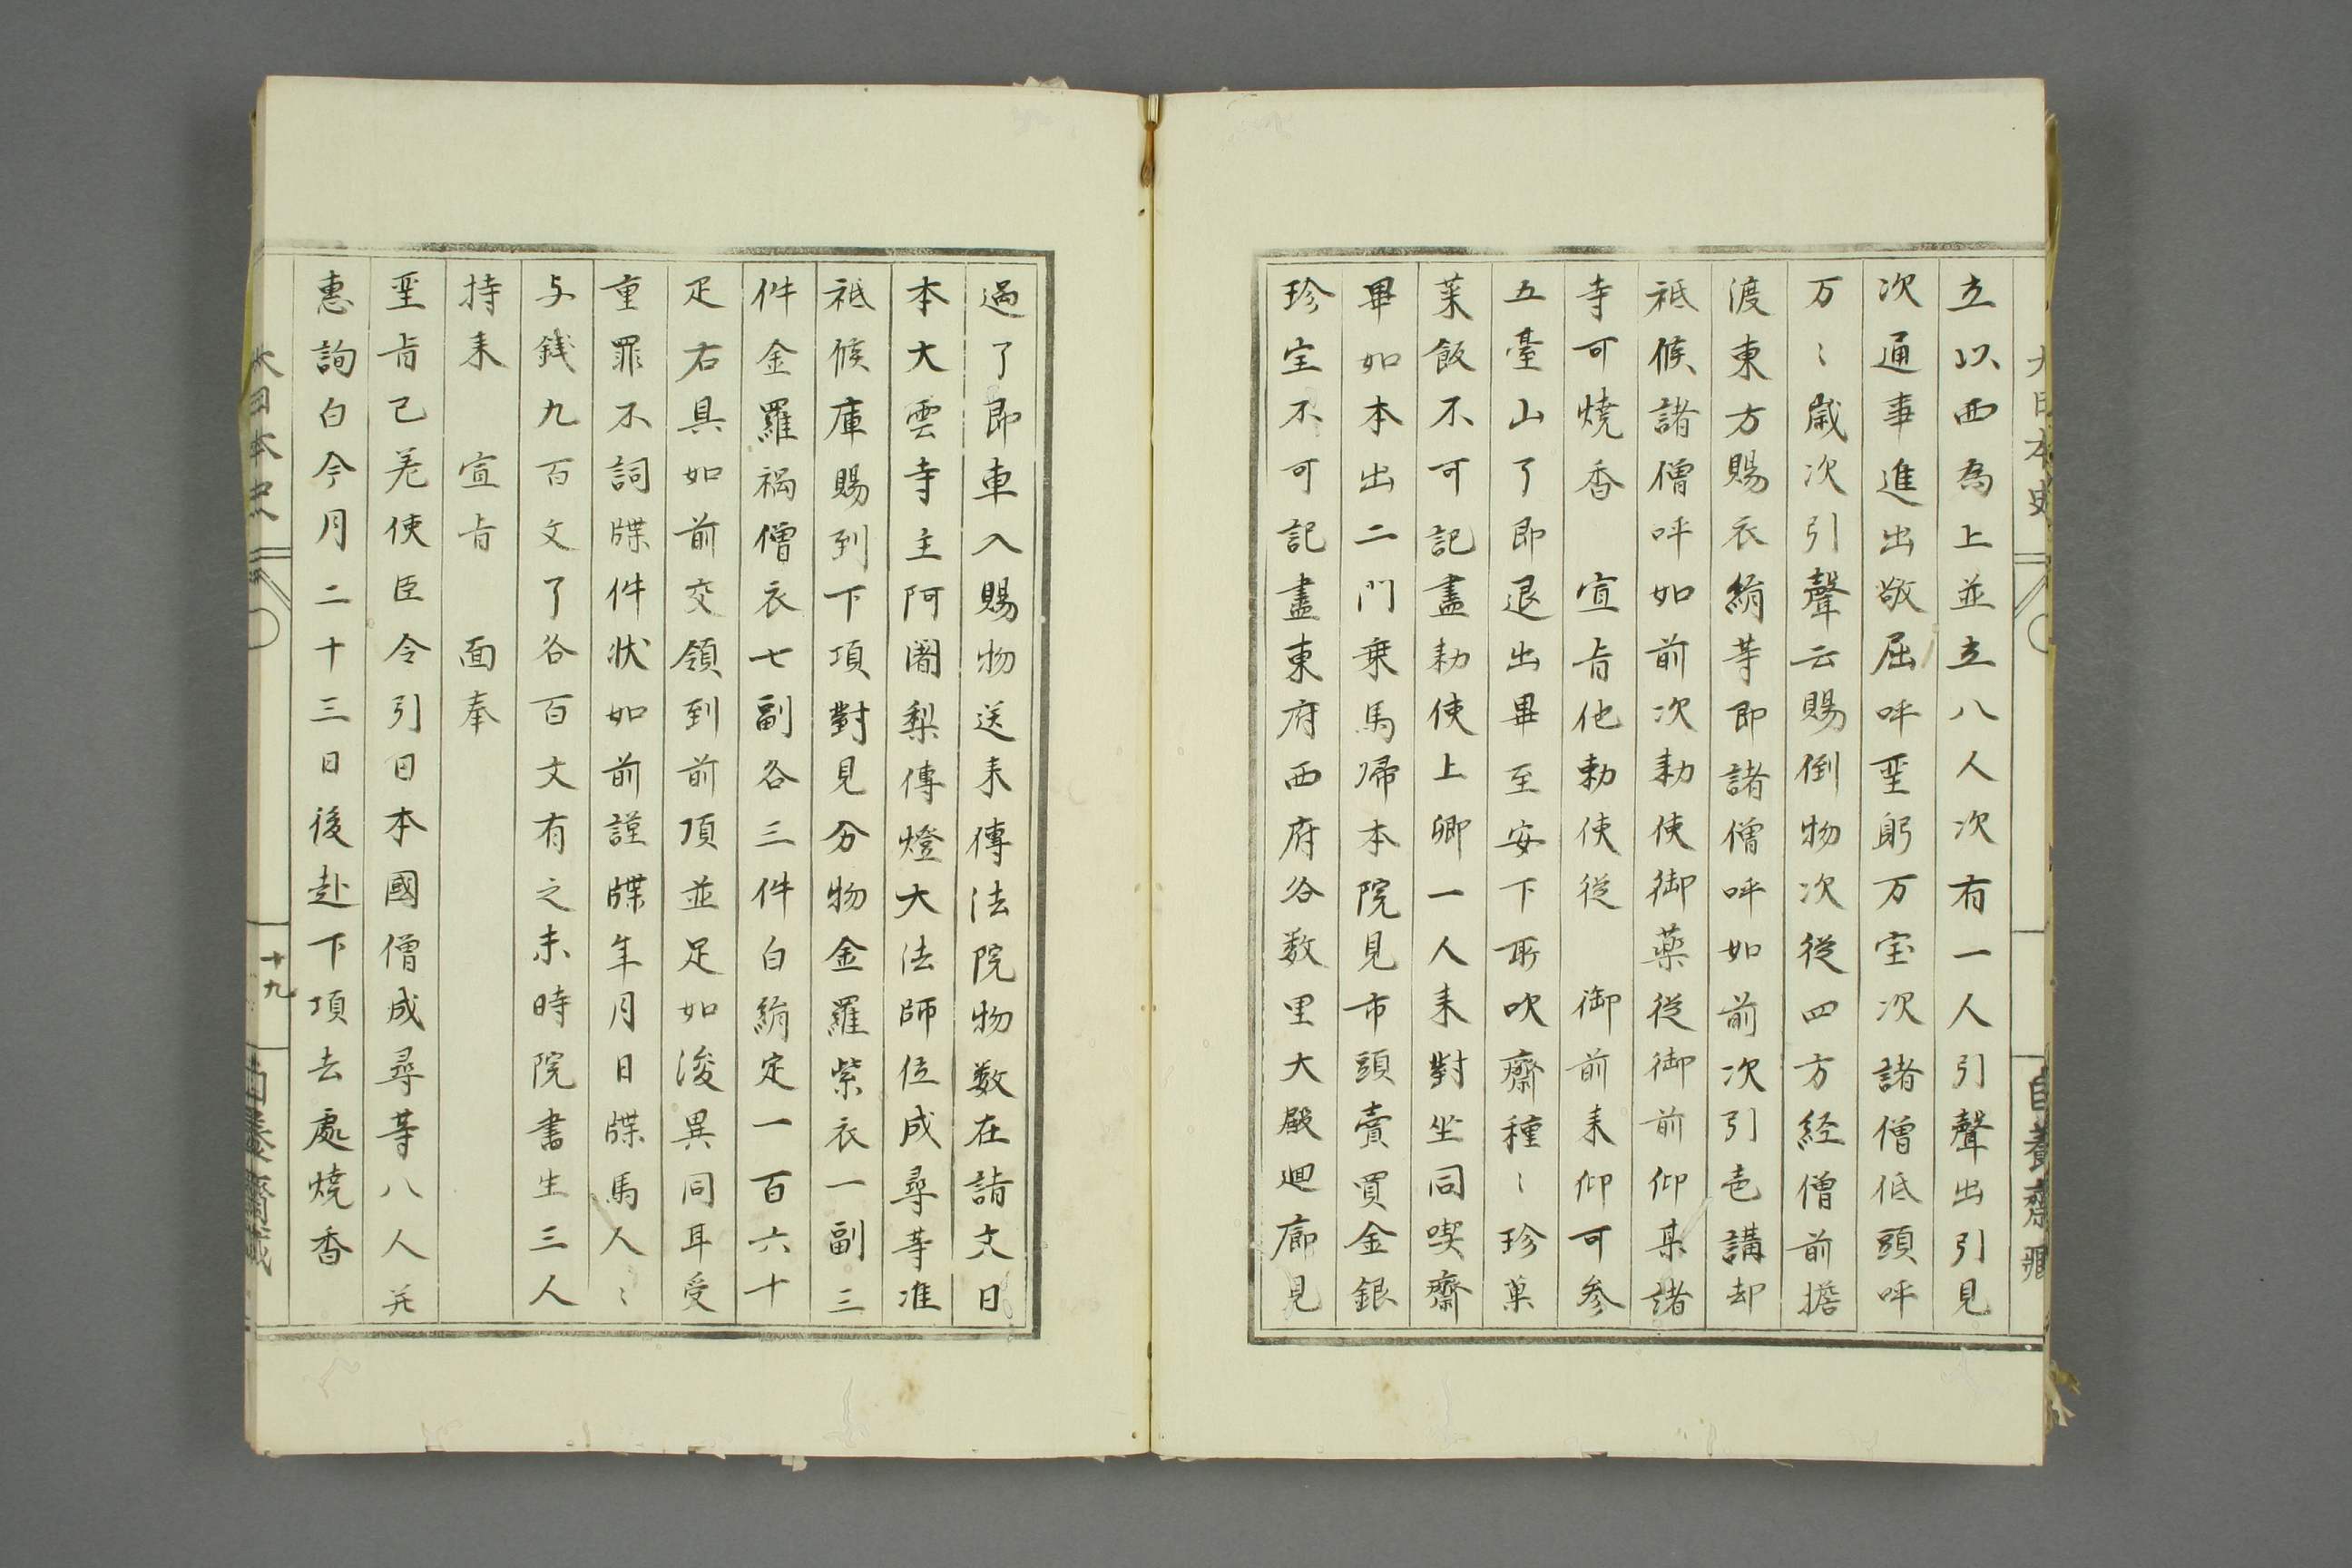 大日本史
自養齋藏
立以西為上並立八人次有一人引聲出引見
次通事進出敬屈呼聖躬万宝次諸僧低頭呼
万〻歳次引聲云賜倒物次從四方経僧前擔
渡東方賜衣絹等即諸僧呼如前次引壱講却
祗候諸僧呼如前次勅使御薬從御前仰某諸
寺可燒香　宣旨他勅使従　御前来仰可参
五臺山了即退出畢至安下所吹齋種〻珍菓
菓飯不可記盡勅使上卿一人来對坐同喫齋
畢如本出二門乗馬帰本院見市頭賣買金銀
珍宝不可記盡東府西府各数里大殿廻廊見
過了即車入賜物送来傳法院物数在請文日
本大雲寺主阿闍梨傳燈大法師位成尋等准
祗候庫賜到下項對見分物金羅紫衣一副三
件金羅褐僧衣七副各三件白絹定一百六十
疋右具如前交領到前項並足如後異同耳受
重罪不詞牒件状如前謹牒年月日牒馬人〻
与銭九百文了各百文有之未時院書生三人
持来　宣旨　面奉
聖旨己差使臣令引日本國僧成尋等八人并
惠詢白今月二十三日後赴下項去處燒香
大日本史
十九
自養齋藏